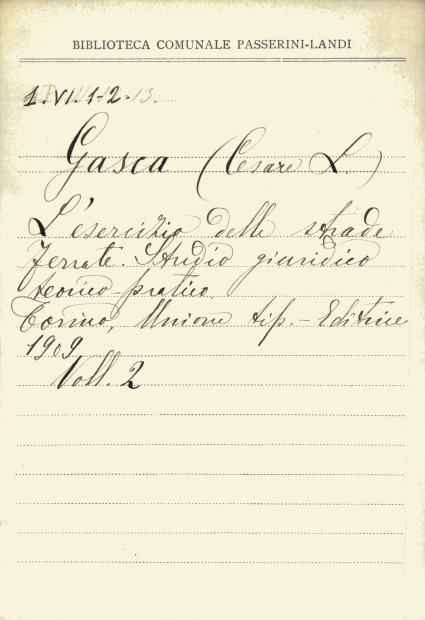 BIBLIOTECA COMUNALE PASSERINI-LANDI
1.VI.1-2.13.
Gasca (Cesare L.)
L'esercizio delle strade
ferrate. Studio giuridico
teorico-pratico.
Torino, Unione tip.-Editrice
1909
Voll. 2